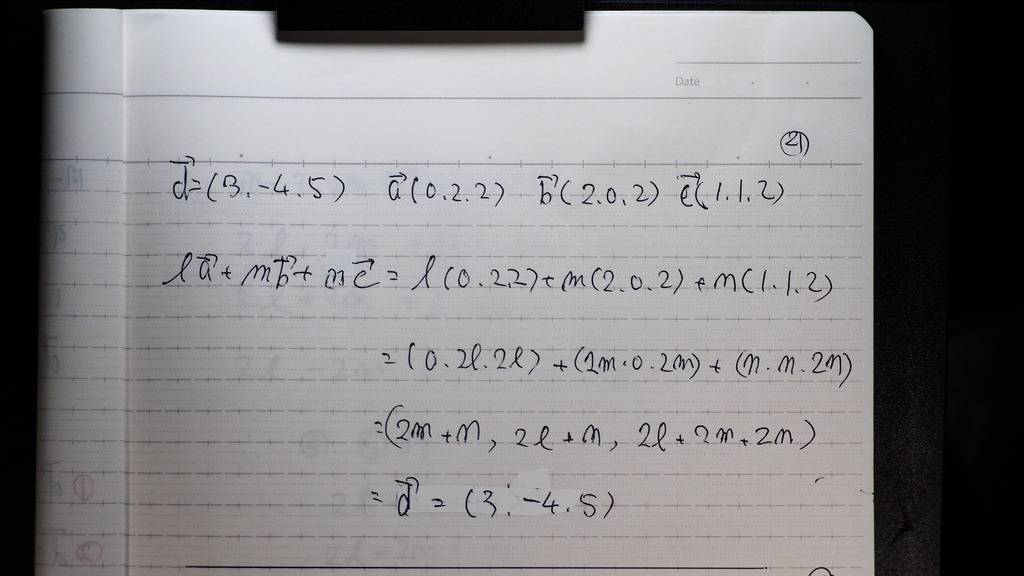 Date
㉑
d⃗=(3.-4.5) a⃗(0.2.2) b⃗(2.0.2) c⃗(1.1.2)
la⃗+mb⃗+nc⃗=l(0.2.2)+m(2.0.2)+n(1.1.2)
=(0.2l.2l)+(2m.0.2m)+(n.n.2n)
=(2m+n, 2l+n, 2l+2m+2n)
=d⃗=(3.-4.5)